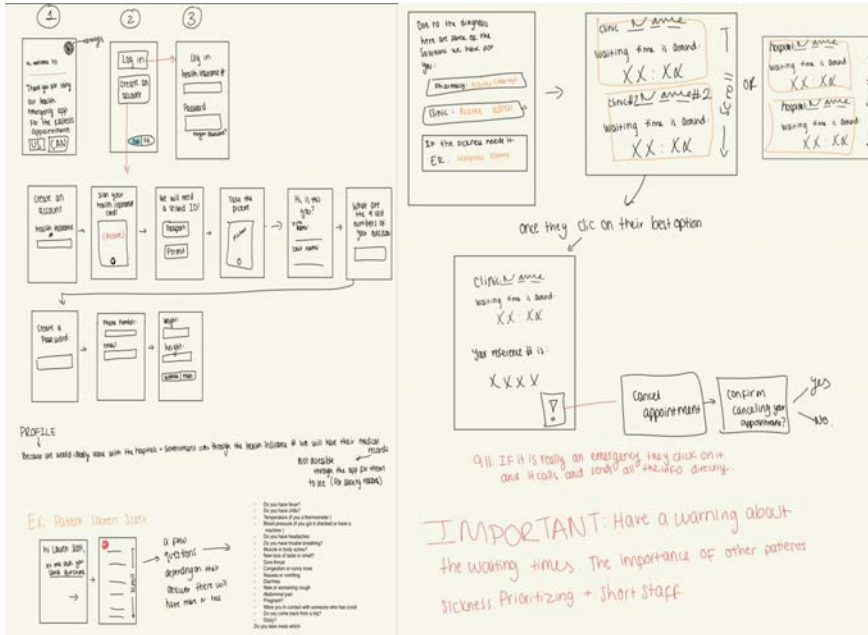 1
2
3
Hi, welcome to
Thank you for using
our health
emergency app
for the fastest
appointment
US
CAN
Log in
Create an
account
Log in
health insurance #
Password
Create an
account
health insurance
#
Scan your
health insurance
card!
(Picture)
We will need
a second ID!
Passport
Permit
Take the
picture
Picture
Hi, is this
you?
Name:
Last name
What are
the 4 last
numbers of
your
Create a
Password.
Phone number:
email:
weight:
height:
PROFILE
Because we would ideally work with the hospitals + Government with through the health Insurance # we will have their medical
records
Not available
through the app for them
to see (For safety reasons)
Ex: Patient Lauren Scott
Hi Lauren Scott,
let me ask you
some questions
Scroll
a few
questions
depending on their
answer there will
have more or less
- Do you have fever?
- Do you have chills?
- Temperature (if you a thermometer )
- Blood pressure (if you got it checked or have a
machine )
- Do you have headaches
- Do you have trouble breathing?
- Muscle or body aches?
- New loss of taste or smell?
- Sore throat
- Congestion or runny nose
- Nausea or vomiting
- Diarrhea
- New or worsening cough
- Abdominal pain
- Pregnant?
- Were you in contact with someone who has covid
- Do you come back from a trip?
- Dizzy?
Do you take meds which
Due to the diagnosis
here are some of the
Solutions we have for
you:
Pharmacy:
Clinic:
If the sickness needs it:
ER: Hospital Name
Clinic Name
Waiting time is around:
XX:XX
Clinic#2 Name#2
Waiting time is around:
XX:XX
or
hospital Name
Waiting time is around:
XX:XX
hospital Name
Waiting time is around:
XX:XX
once they clic on their best option
Clinic Name
Waiting time is around:
XX:XX
Your reference # is:
XXXX
!
Cancel
appointment
Confirm
canceling your
appointment?
Yes
No.
911. IF it is really an emergency they click on it
and it calls and sends all the info directly.
IMPORTANT: Have a warning about
the waiting times. The importance of other patients
sickness. Prioritizing + short staff.